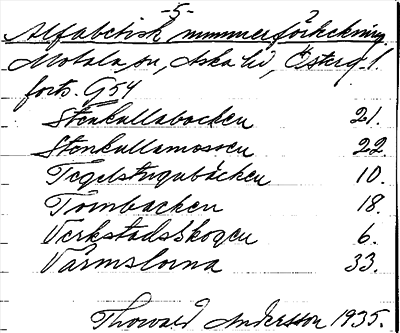 -5-
Alfabetisk nummerförteckning
Motala sn, Aska hd, Österg. l.
forts. G54
Stenkullabacken 21.
Stenkullamossen 22.
Tegelstugubäcken 10.
Tombacken 18.
Verkstadsskogen 6.
Värmslorna 33.
Thorvald Andersson 1935.